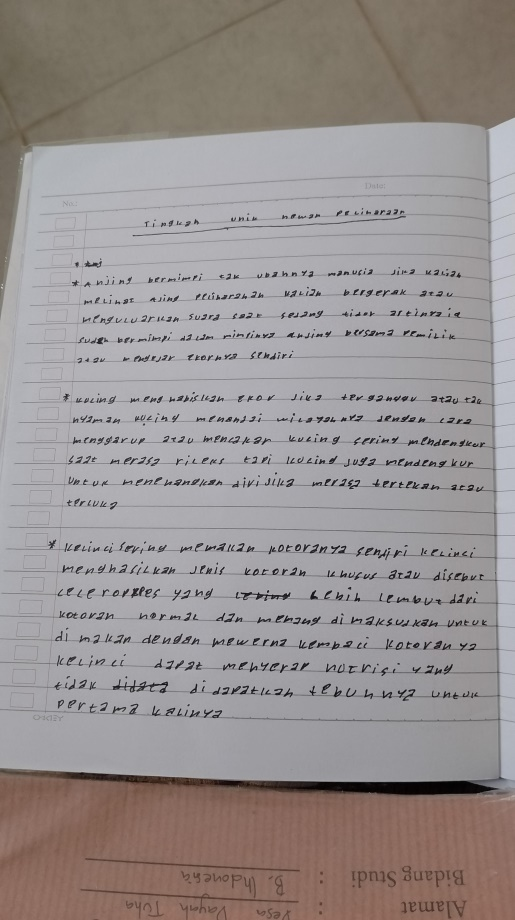 No:
Date:
Tingkah unik hewan peliharaan
* Anjing bermimpi tak ubahnya manusia jika kalian
melihat Ajing peliharahan kalian bergerak atau
menguluarkan suara saat sedang tidor artinya ia
sudah bermimpi dalam mimpinya anjing bersama pemilik
atau mengejar ekornya sendiri
* kucing menghabiskan ekor jika terganggu atau tak
nyaman kucing menandai wilayahnya dengan cara
menggarup atau mencakar kucing sering mendengkur
saat merasa rileks tapi kucing juga mendengkur
untuk menenangkan diri jika merasa tertekan atau
terluka
* kelinci sering memakan kotoranya sendiri kelinci
menghasilkan jenis kotoran khusus atau disebut
yang lebih lembut dari
kotoran normal dan memang dimaksuskan untuk
di makan dengan mewerna kembali kotoran ya
kelinci dapat menyerap notrisi yang
tidak didapatkan tebuhnya untuk
pertama kalinya
Bidang Studi : B. Indonesia
Alamat : Desa Dayah Tuha